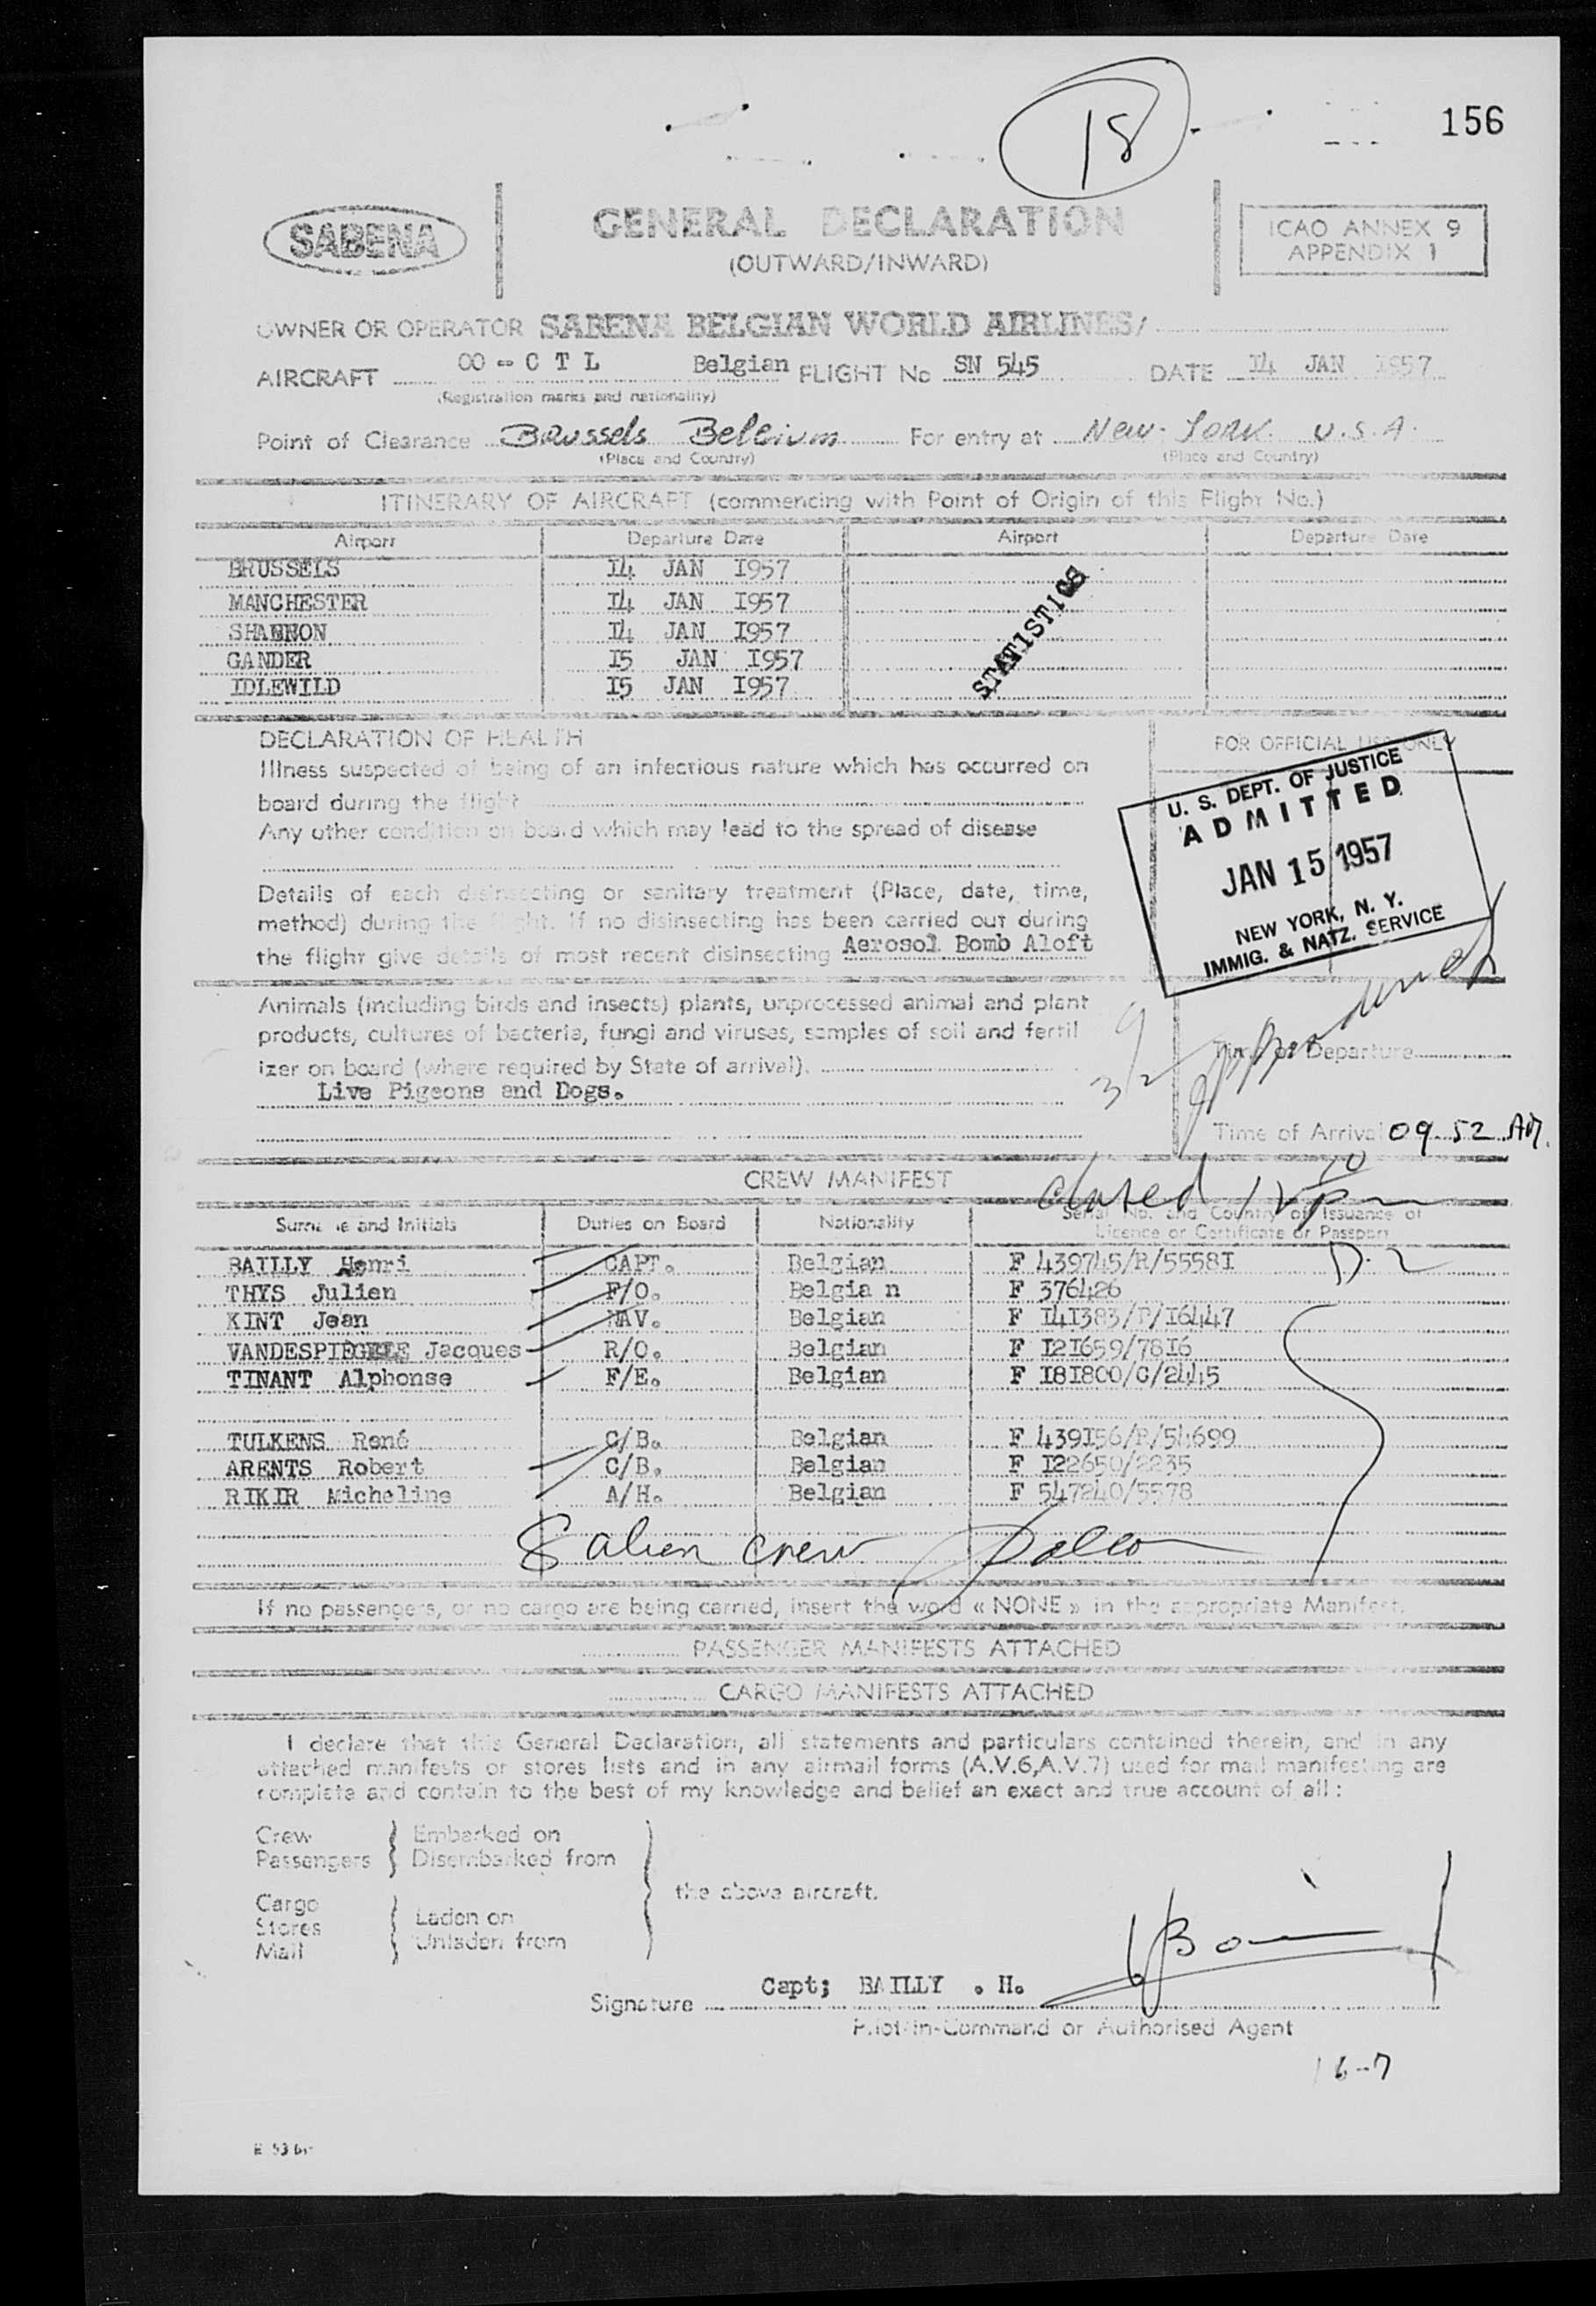 18
156
SABENA
GENERAL DECLARATION
(OUTWARD/INWARD)
ICAO ANNEX 9
APPENDIX 1
OWNER OR OPERATOR SABENA BELGIAN WORLD AIRLINES/
AIRCRAFT OO - C T L Belgian FLIGHT No SN 545 DATE I4 JAN I957
(Registration marks and nationality)
Point of Clearance Brussels Belgium For entry at New-York. U.S.A.
(Place and Country) (Place and Country)
ITINERARY OF AIRCRAFT (commencing with Point of Origin of this Flight No.)
Airport Departure Date Airport Departure Date
BRUSSELS I4 JAN I957
MANCHESTER I4 JAN I957
SHANNON I4 JAN I957
GANDER I5 JAN I957
IDLEWILD I5 JAN I957
STATISTICS
DECLARATION OF HEALTH
Illness suspected of being of an infectious nature which has occurred on
board during the flight
Any other condition on board which may lead to the spread of disease
Details of each disinsecting or sanitary treatment (Place, date, time,
method) during the flight. If no disinsecting has been carried out during
the flight give details of most recent disinsecting Aerosol Bomb Aloft
FOR OFFICIAL USE ONLY
U. S. DEPT. OF JUSTICE
ADMITTED
JAN 15 1957
NEW YORK, N. Y.
IMMIG. & NATZ. SERVICE
Animals (including birds and insects) plants, unprocessed animal and plant
products, cultures of bacteria, fungi and viruses, samples of soil and fertil
izer on board (where required by State of arrival).
Live Pigeons and Dogs.
Time of Departure
Time of Arrival 09.52 AM.
CREW MANIFEST
Surname and Initials Duties on Board Nationality Serial No. and Country of Issuance of
Licence or Certificate or Passport
BAILLY Henri CAPT. Belgian F 439745/R/5558I
THYS Julien F/O. Belgia n F 376426
KINT Jean NAV. Belgian F I4I383/P/I6447
VANDESPIEGELE Jacques R/O. Belgian F I2I659/78I6
TINANT Alphonse F/E. Belgian F I8I800/C/2445
TULKENS René C/B. Belgian F 439I56/R/54699
ARENTS Robert C/B. Belgian F I22650/2235
RIKIR Micheline A/H. Belgian F 547240/5578
8 alien crew
If no passengers, or no cargo are being carried, insert the word « NONE » in the appropriate Manifest.
PASSENGER MANIFESTS ATTACHED
CARGO MANIFESTS ATTACHED
I declare that this General Declaration, all statements and particulars contained therein, and in any
attached manifests or stores lists and in any airmail forms (A.V.6,A.V.7) used for mail manifesting are
complete and contain to the best of my knowledge and belief an exact and true account of all :
Crew Embarked on
Passengers Disembarked from
the above aircraft.
Cargo
Stores Laden on
Mail Unladen from
Signature Capt; BAILLY . H.
Pilot-in-Command or Authorised Agent
16-7